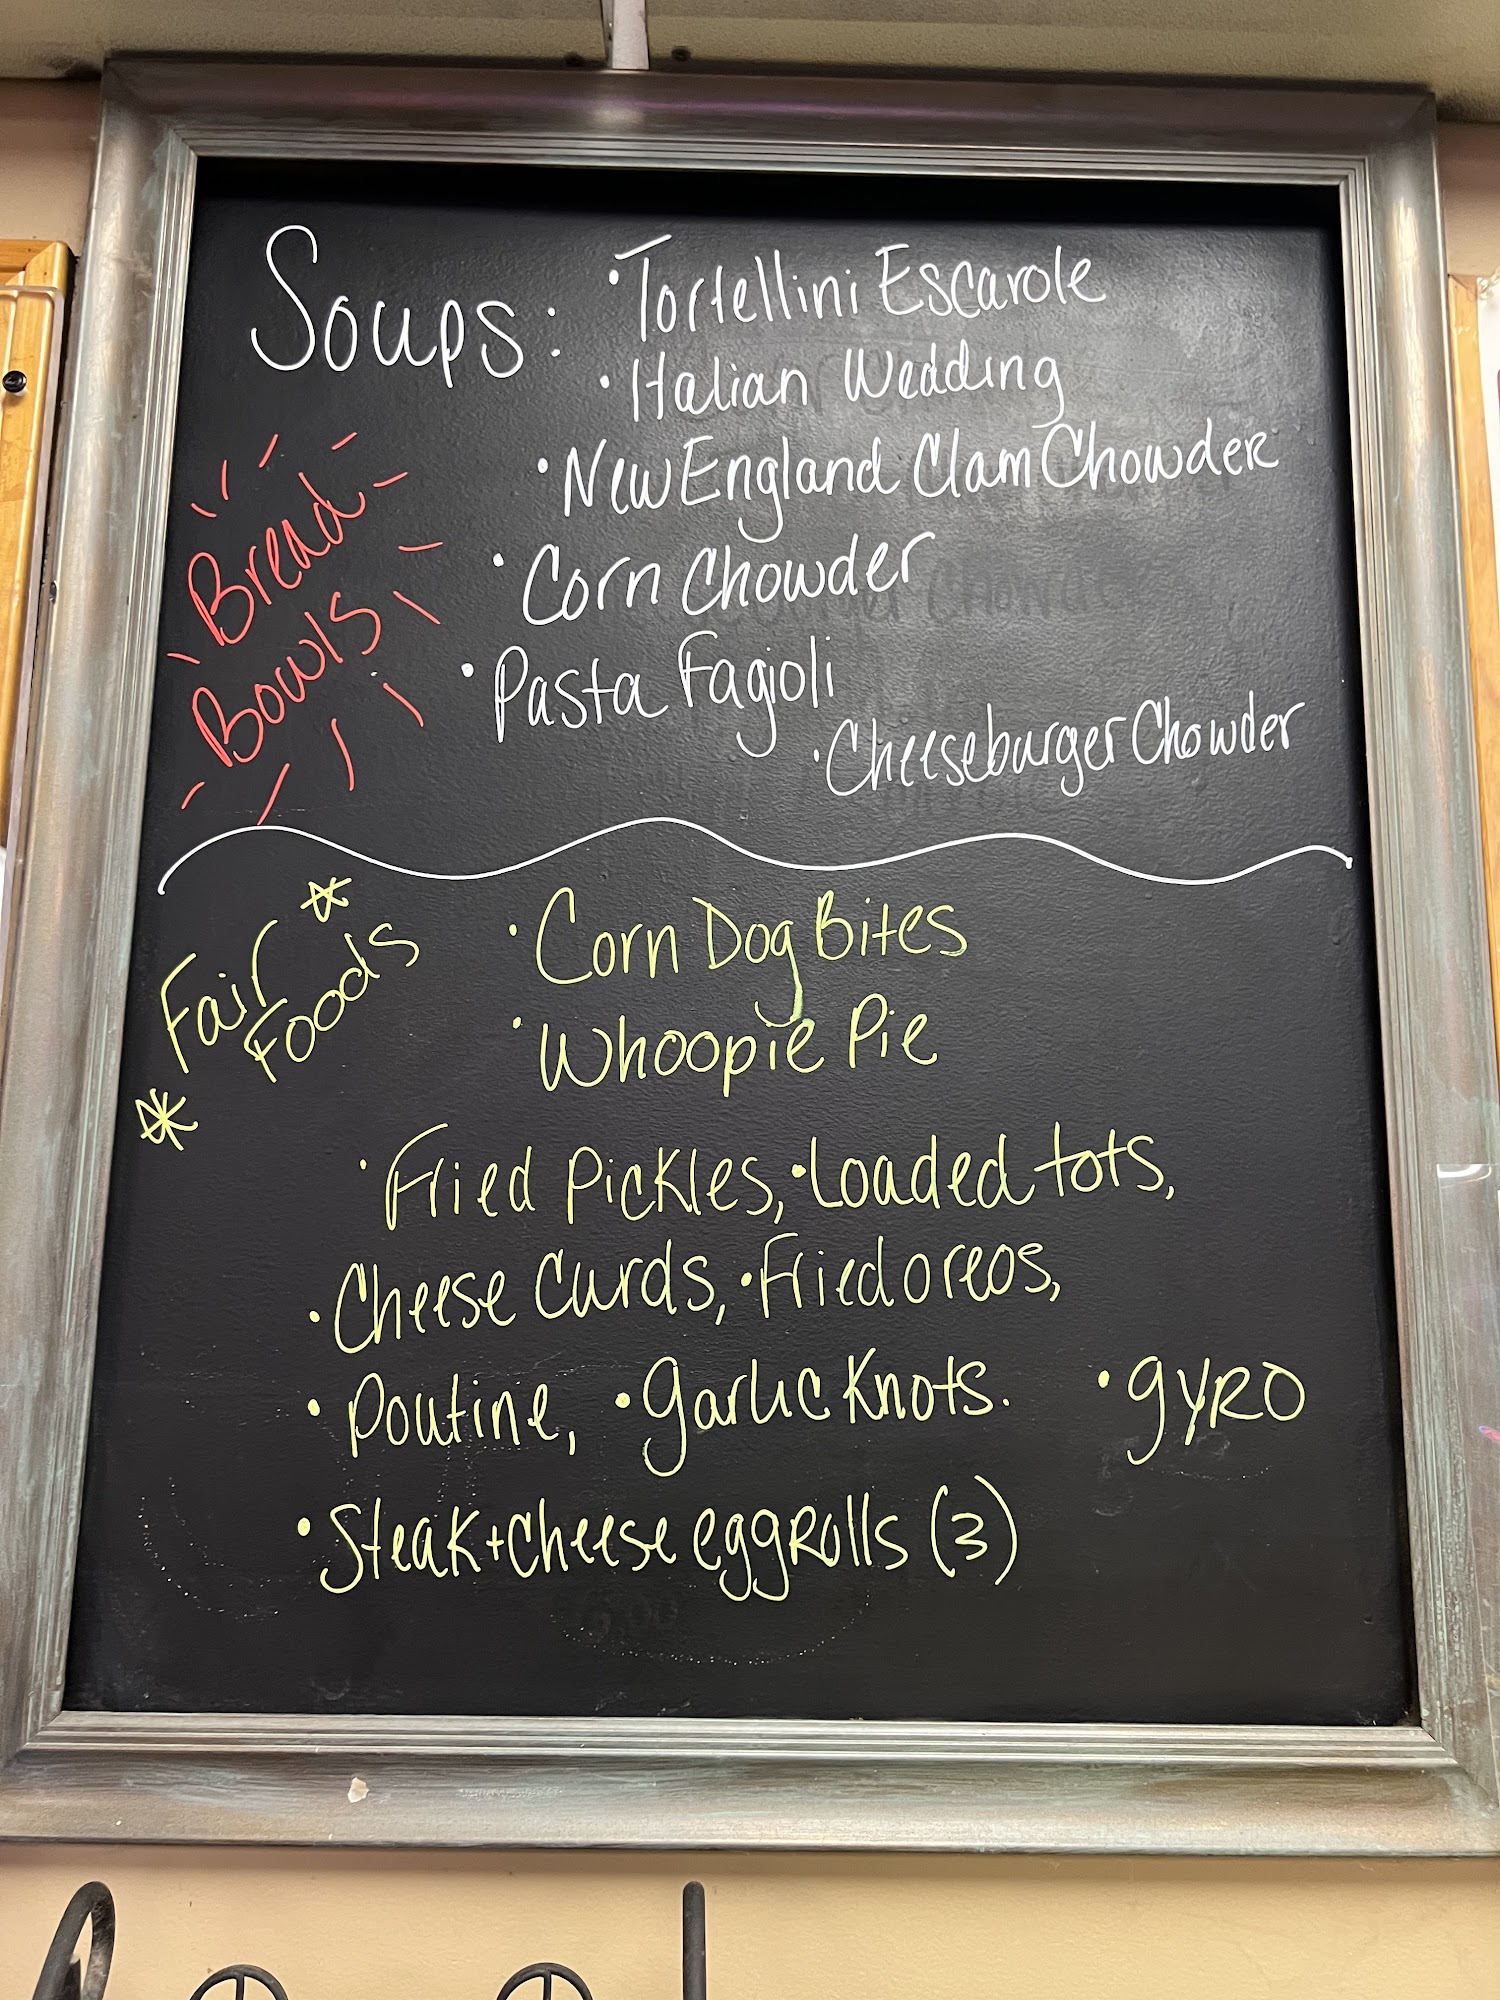 Soups: • Tortellini Escarole
• Italian Wedding
• New England Clam Chowder
• Corn Chowder
• Pasta Fagioli
• Cheeseburger Chowder
Bread
Bowls
Fair
Foods
• Corn Dog Bites
• Whoopie Pie
• Fried Pickles, • Loaded tots,
• Cheese Curds, • Fried oreos,
• Poutine, • garlic Knots. • gyro
• Steak + cheese eggrolls (3)